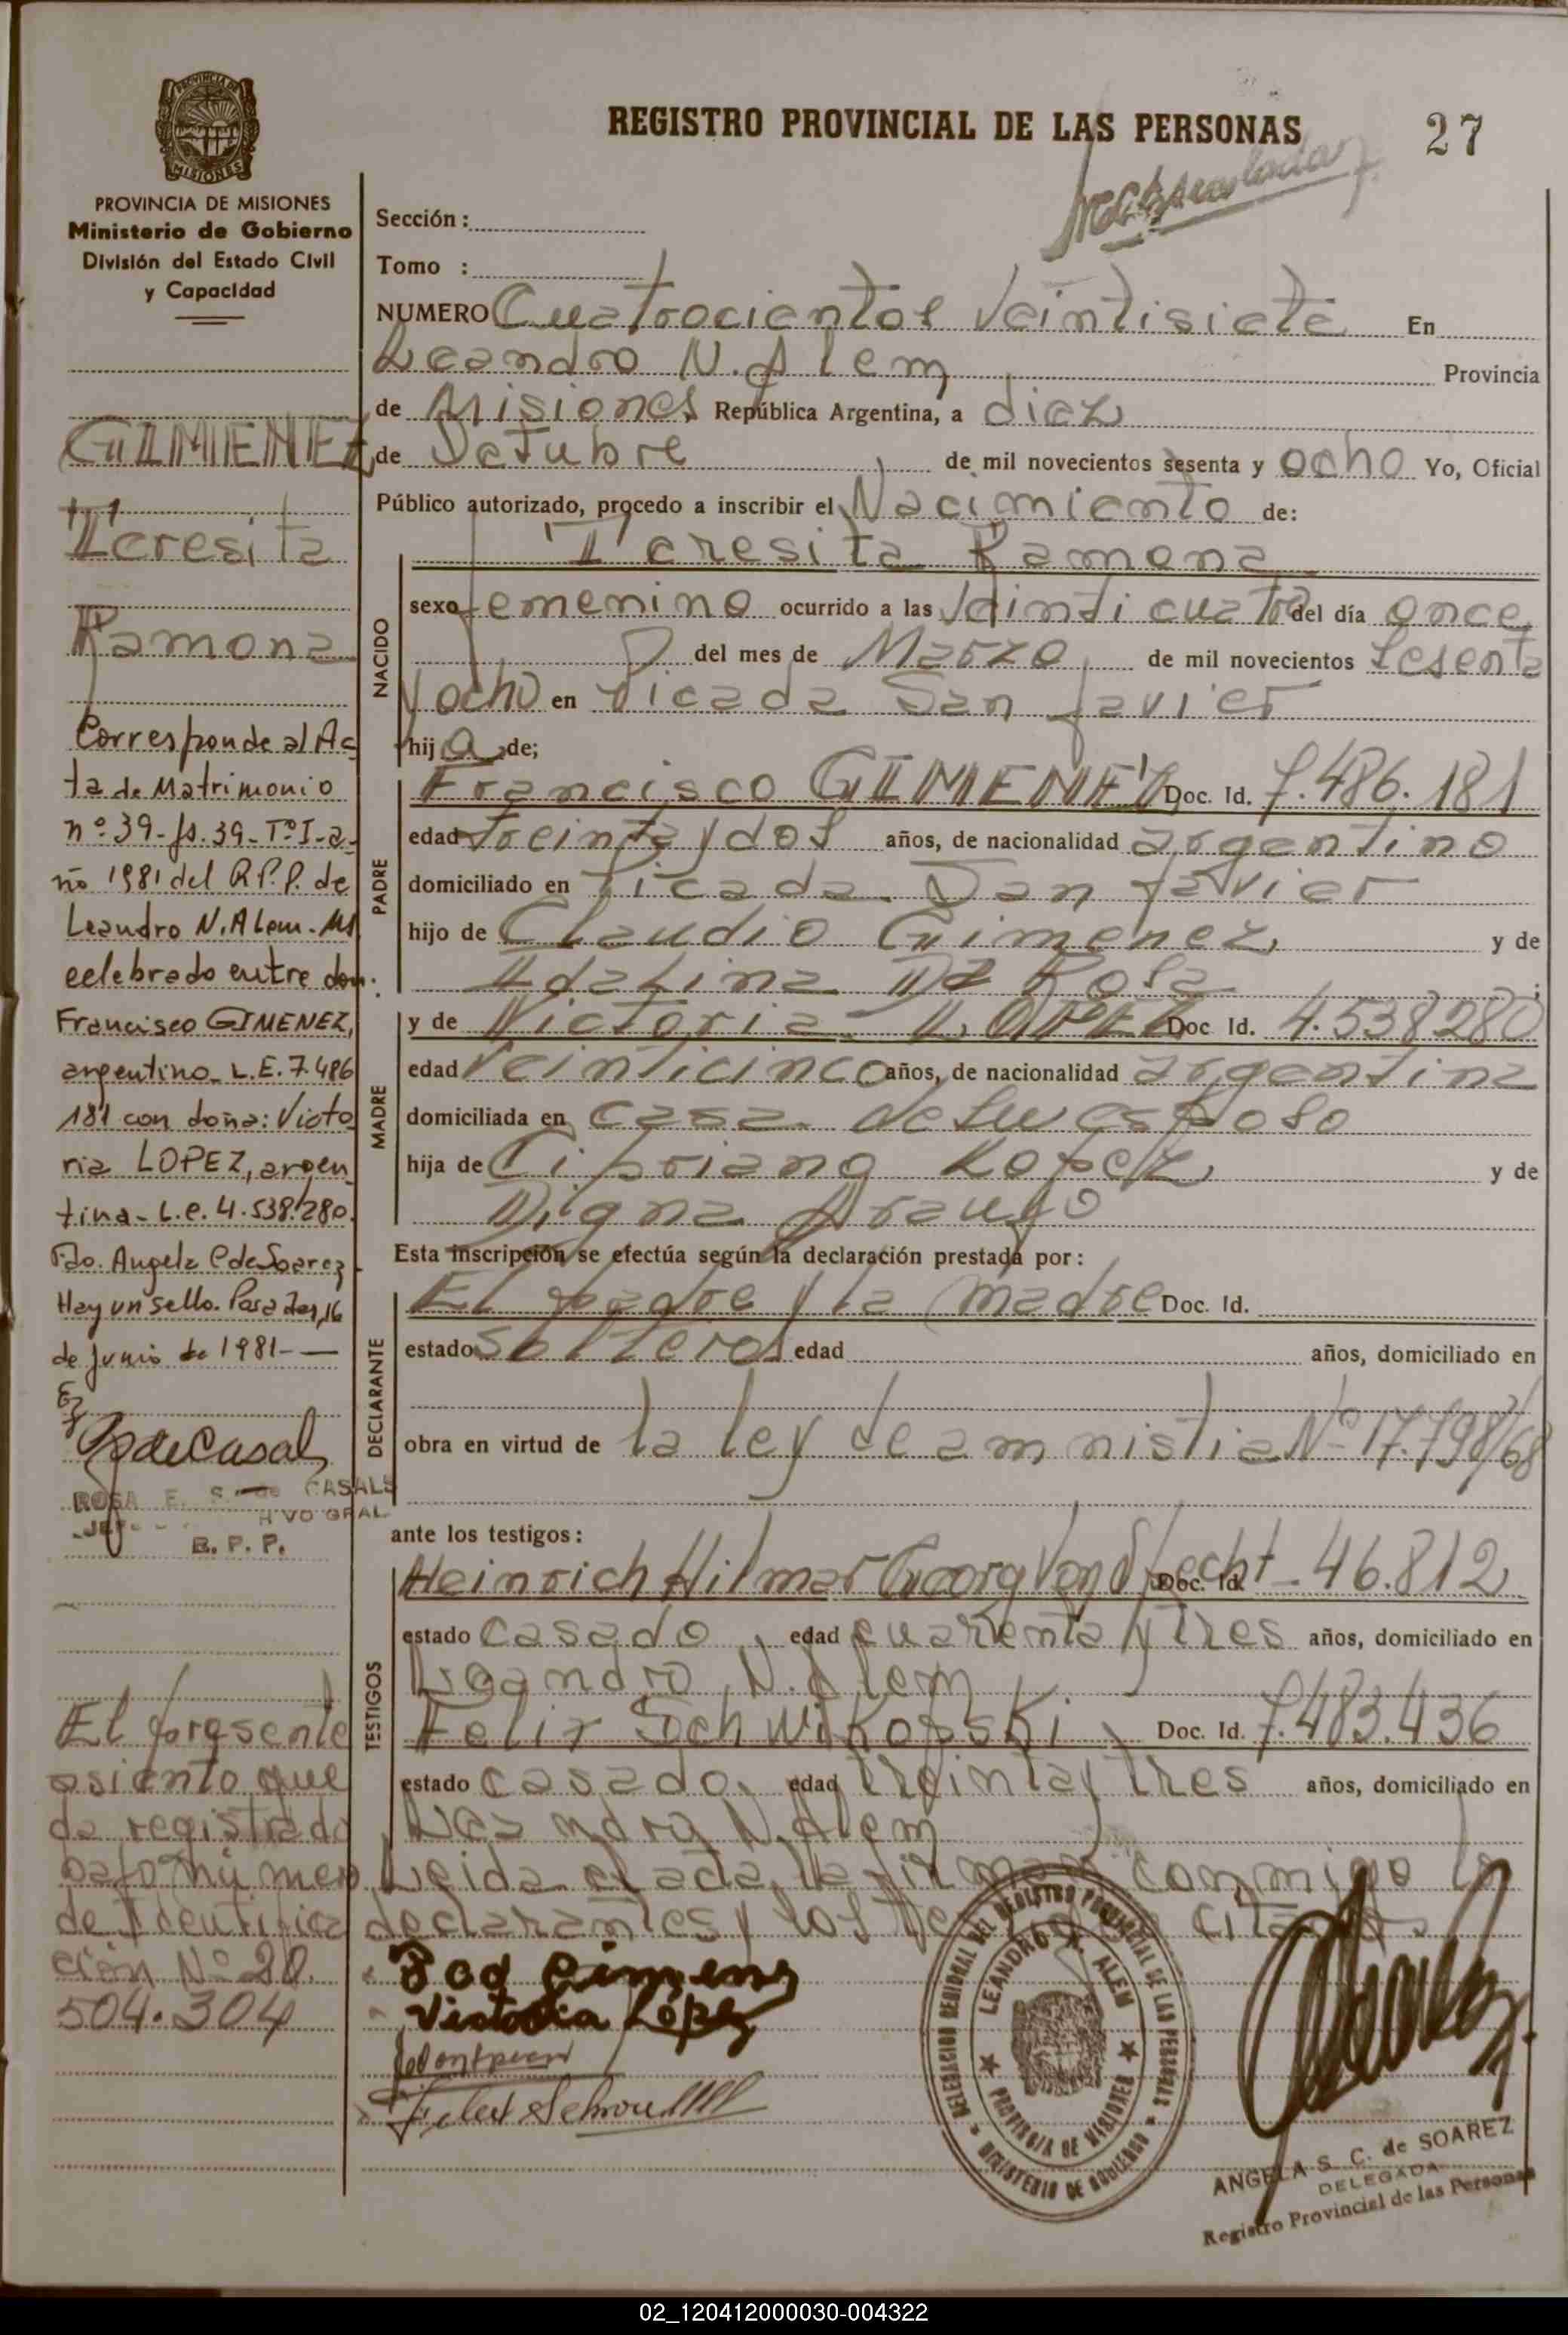 REGISTRO PROVINCIAL DE LAS PERSONAS
27
PROVINCIA DE
MISIONES
PROVINCIA DE MISIONES
Ministerio de Gobierno
División del Estado Civil
y Capacidad
GIMENEZ
Teresita
Ramona
Corresponde al Ac
ta de Matrimonio
nº 39- fs. 39- Tº I- a-
ño 1981 del R.P.P. de
Leandro N. Alem. Ms
celebrado entre don:
Francisco GIMENEZ,
argentino- L.E. 7.486
181 con doña: Victo
ria LOPEZ, argen
tina- L.e. 4.538.280.
Fdo. Angela C de Soarez
Hay un sello. Posadas, 16
de junio de 1981- —
ROSA E. S. de CASALS
R. P. P.
El presente
asiento que
da registrado
bajo númer
de Identifica
ción Nº 20.
504.304
Sección :
Tomo :
NUMERO Cuatrocientos Veintisiete En
Leandro N. Alem Provincia
de Misiones República Argentina, a diez
de Octubre de mil novecientos sesenta y ocho Yo, Oficial
Público autorizado, procedo a inscribir el Nacimiento de:
Teresita Ramona
NACIDO
sexo femenino ocurrido a las Veinticuatro del día once
del mes de Marzo de mil novecientos Sesenta
y ocho en Picada San Javier
hija de;
PADRE
Francisco GIMENEZ Doc. Id. 7.486.181
edad treinta y dos años, de nacionalidad argentino
domiciliado en Picada San Javier
hijo de Claudio Gimenez, y de
Adalina Da Rosa ;
MADRE
y de Victoria LOPEZ Doc Id. 4.538.280
edad Veinticinco años, de nacionalidad argentina
domiciliada en casa de su esposo
hija de Cipriano Lopez, y de
Digna Araujo
Esta inscripción se efectúa según la declaración prestada por :
DECLARANTE
El padre y la madre Doc. Id.
estado solteros edad años, domiciliado en
obra en virtud de la ley de amnistia Nº 17.798/68
ante los testigos :
TESTIGOS
Heinrich Hilmar Georg Von Doc. Id. 46.812
estado casado, edad cuarenta y tres años, domiciliado en
Leandro N. Alem
Felix Schwikopski, Doc. Id. 7.483.436
estado casado, edad treinta y tres años, domiciliado en
Leandro N. Alem
Leida el acta, la firman conmigo los
declarantes y los
Victoria López
DELEGACION REGIONAL DEL REGISTRO PROVINCIAL DE LAS PERSONAS
MINISTERIO DE GOBIERNO
LEANDRO N. ALEM
PROVINCIA DE MISIONES
ANGELA S. C. de SOAREZ
DELEGADA
Registro Provincial de las Personas
02_120412000030-004322